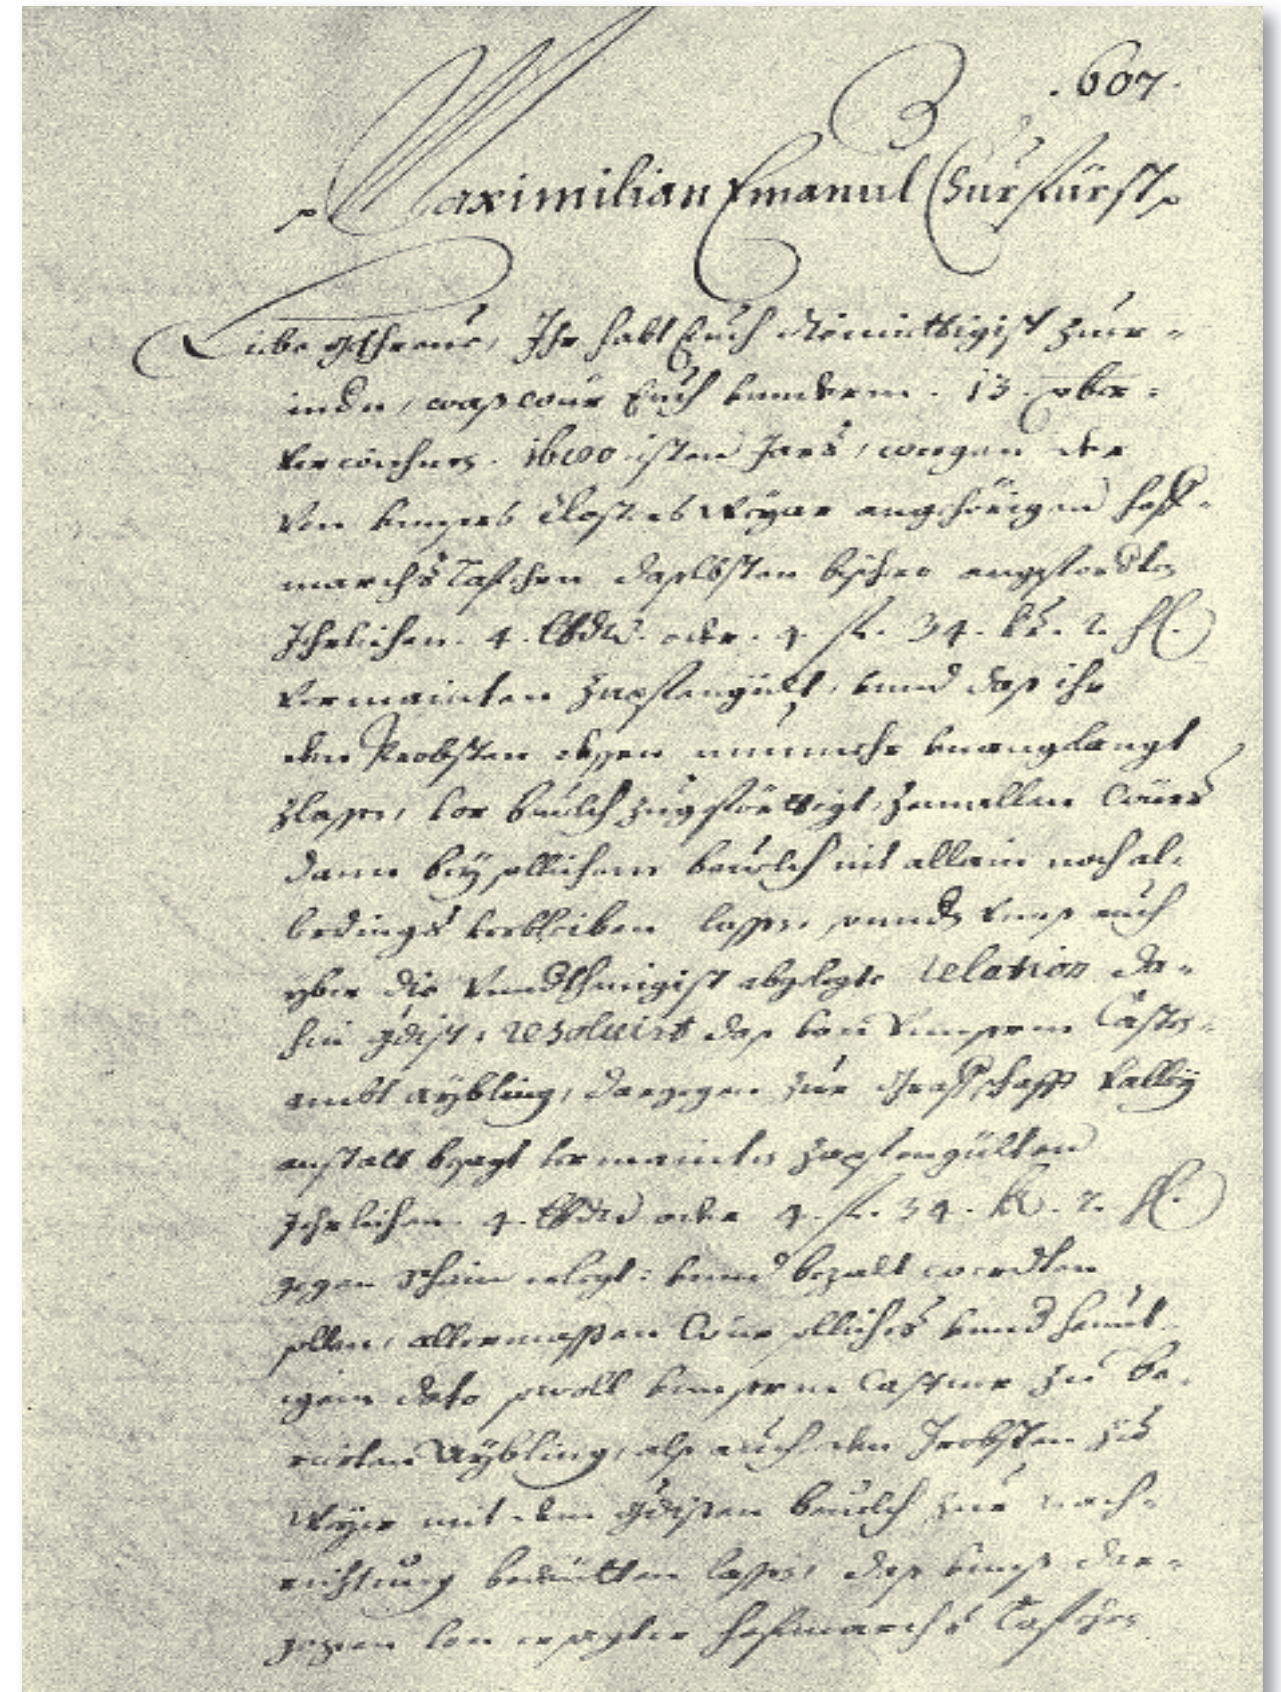 .607.
Maximilian Emanuel Churfürst
Liebe Gethreue, Ihr habt Euch diemüettigist zuer-
indn, waß wür Euch vnderm. 13.
verwichnes. 1690 isten Jars, wegen der
von vnnsers Closters Weyar angehörigen Hof-
marchs Tafehrn daselbsten bishero angeforderte
Jehrlichen. 4. oder. 4. fl. 34. kr. 2. hl.
vermainten Zapfengüllt, vnnd daß ihr
den Probsten dessen nunmehr vnanglangt
zlassen, vor beuelch zuegeförttigt, zemallen würs
dann bey sollichem beuelch nit allain noch al-
lerdings verbleiben lassen, vnnd vnns auch
yber die vnnderthenigist abgelegte relation da-
hin gdist. resoluirt daß von vnnserm Cassten-
ambt Aybling, dargegen zur Graffschafft Valley
anstatt besagt vermainte Zapfengülten
Jehrlichen. 4. oder 4. fl. 34. kr. 2. hl.
gegen Schein erlegt: vnnd bezalt werdten
sollen, allermassen wür solliches vnnd heunt-
igem dato sowoll vnnserm Casstner zu be-
rierten Aybling, alß auch den Probsten zu
Weyer mit dem gdisten beuelch zur nach-
richtung bedeitten lassen, daß vnnß der-
gegen von ersagter Hofmarchs Tafehrn